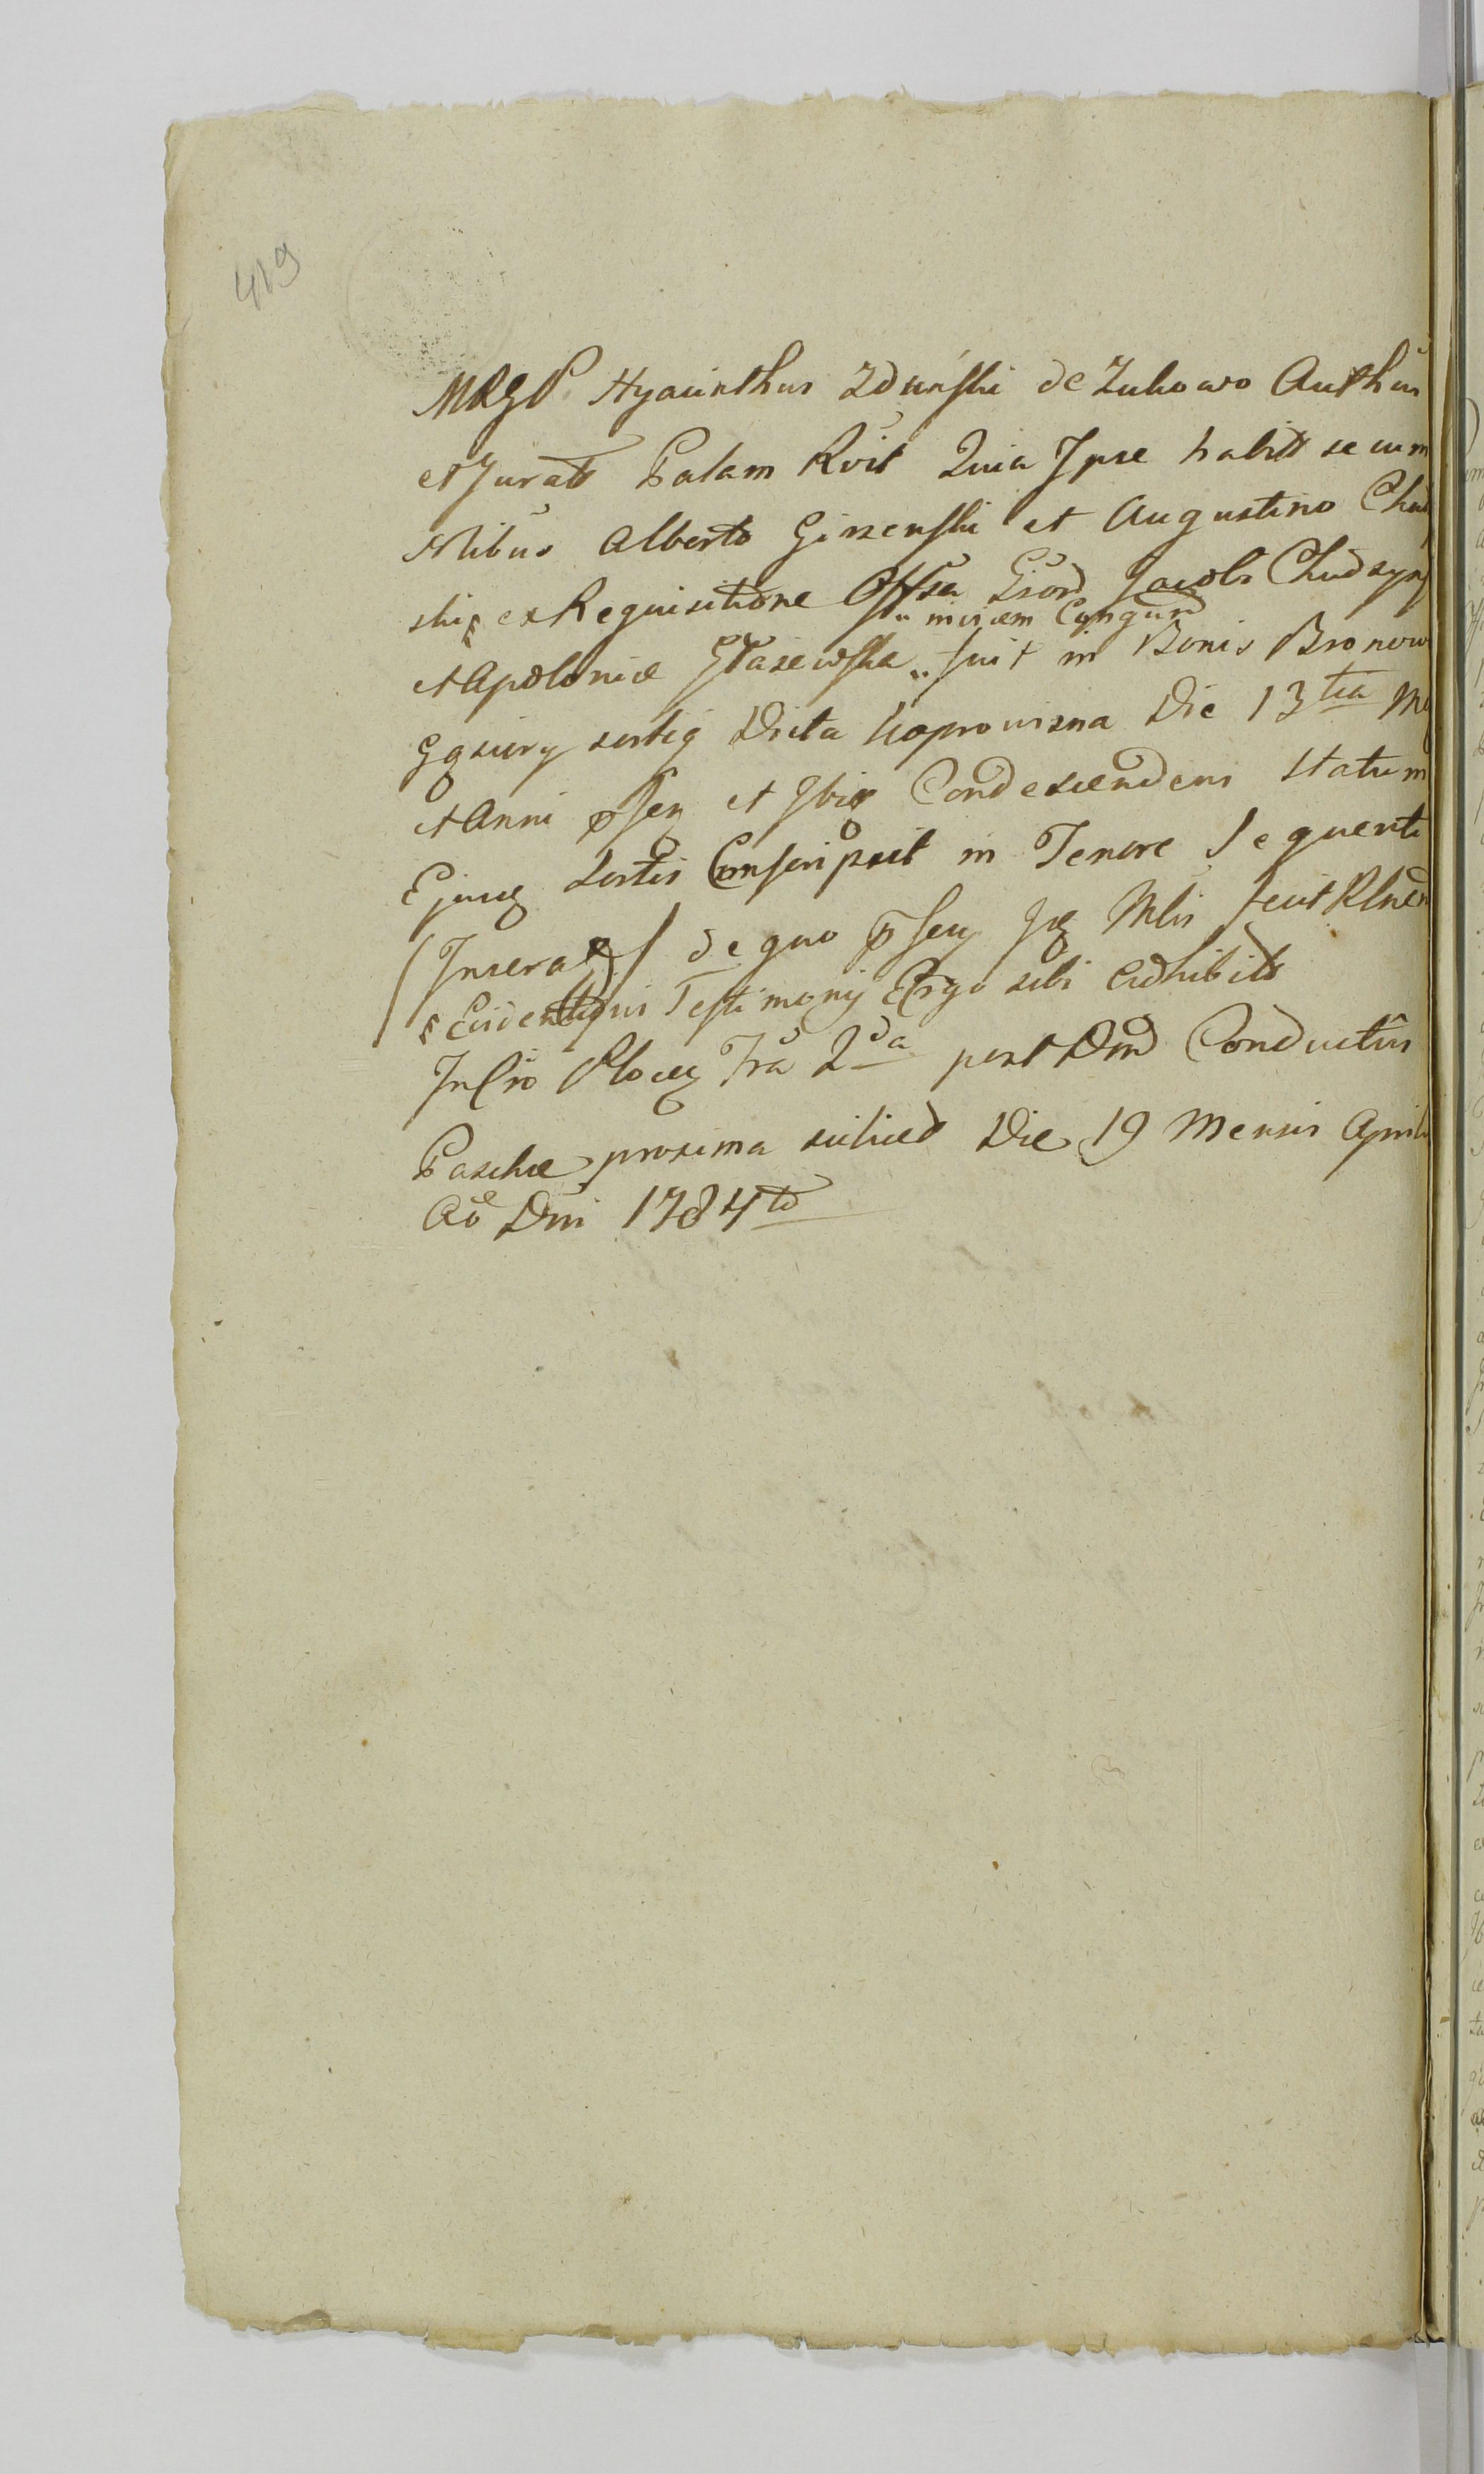 419
MRGP Hyacinthus Zduński de Zukowo Authen
et Jurats Palam Rvit Quia Ipse habitt secum
Nlibus Alberto Girzenski et Augustino Chu
ski ex Requisitione Offsa Gsord Jacobi Chudzyns
invicem Cjngum
et Apoloniæ Głażewska fuit in Bonis Bronow
sortiq Dicta Koprowizna Die 13tia M
et Anni pſen et Ibiq Condescendens Statum
Ejusq Sortis Conscripsit in Tenore Sequenti
(Inserat) de quo pſens Jq Mlis fecit Rlnem
Evidentioris Testimonij Ergo sibi Exhibits
In Cro Plocen Fra 2da post Dnd Conductus
Paschæ proxima scilicet Die 19 Mensis Aprili
Aõ Dni 1784to